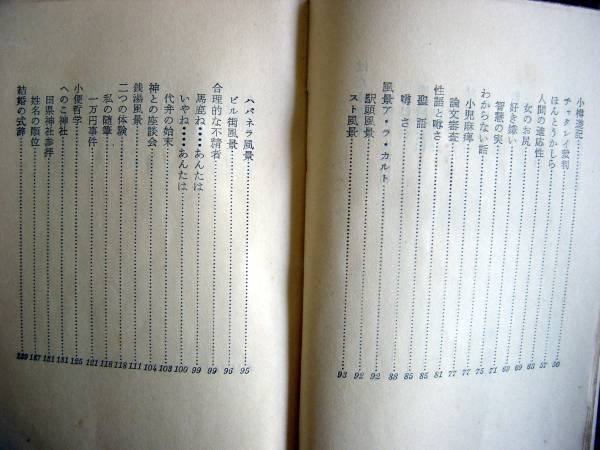 小樽遊記 50
チャタレイ裁判 57
ほんとうかしら 63
人間の適応性 69
女のお尻 69
好き嫌い 71
智慧の実 75
わからない話 77
小児麻痺 77
論文審査 81
性語と噂さ 85
聖語 85
噂さ 88
風景ア・ラ・カルト 92
駅頭風景 92
スト風景 93
ハバネラ風景 95
ビル街風景 96
合理的な不精者 99
馬鹿ね・・・・あんたは 99
いやね・・・・あんたは 100
代弁の始末 103
神との座談会 104
銭湯風景 111
二つの体験 118
私の随筆 118
一万円事件 121
小便哲学 125
へのこ神社 131
田県神社参拝 131
姓名の順位 137
結婚の式辞 139